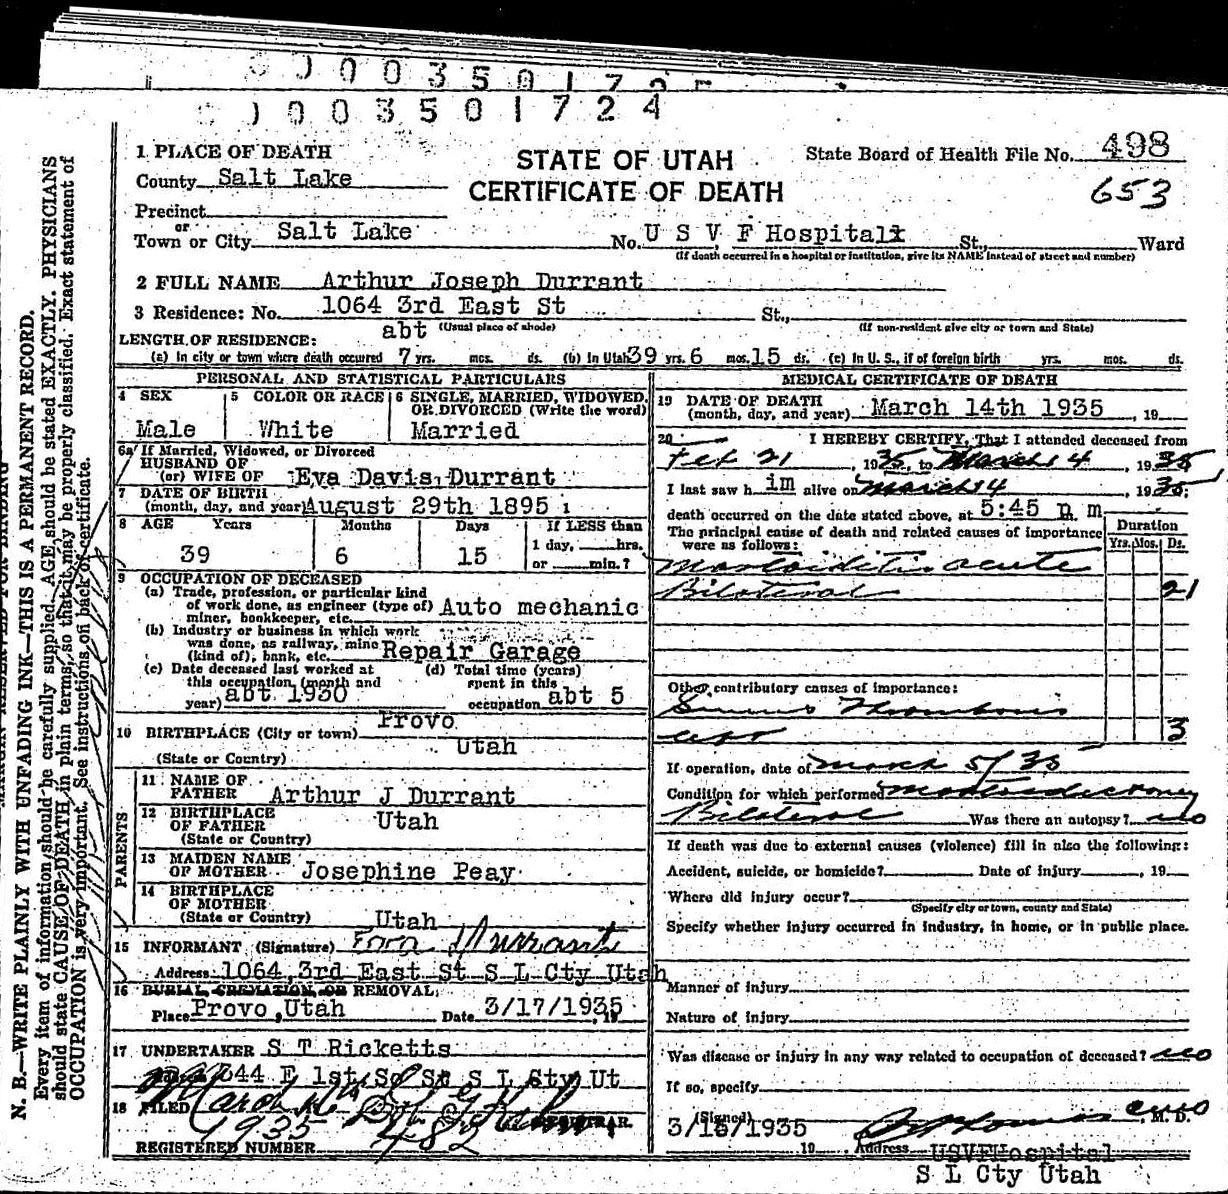 0 0 0 3 5 0 1 7 2
0 0 3 5 0 1 7 2 4
1 PLACE OF DEATH
STATE OF UTAH
CERTIFICATE OF DEATH
State Board of Health File No. 498
653
County Salt Lake
Precinct
or
Town or City Salt Lake No. U S V F Hospital St., Ward
(If death occurred in a hospital or institution, give its NAME instead of street and number)
2 FULL NAME Arthur Joseph Durrant
3 Residence: No. 1064 3rd East St St.,
(Usual place of abode) (If non-resident give city or town and State)
LENGTH OF RESIDENCE: abt
(a) In city or town where death occurred 7 yrs. mos. ds. (b) In Utah 39 yrs. 6 mos. 15 ds. (c) In U. S., if of foreign birth yrs. mos. ds.
PERSONAL AND STATISTICAL PARTICULARS
4 SEX Male
5 COLOR OR RACE White
6 SINGLE, MARRIED, WIDOWED, OR DIVORCED (Write the word) Married
6a If Married, Widowed, or Divorced
HUSBAND OF
(or) WIFE OF Eva Davis Durrant
7 DATE OF BIRTH
(month, day, and year) August 29th 1895
8 AGE Years Months Days If LESS than
1 day, hrs.
39 6 15 or min.?
9 OCCUPATION OF DECEASED
(a) Trade, profession, or particular kind
of work done, as engineer (type of)
miner, bookkeeper, etc. Auto mechanic
(b) Industry or business in which work
was done, as railway, mine
(kind of), bank, etc. Repair Garage
(c) Date deceased last worked at
this occupation (month and
year) abt 1930
(d) Total time (years)
spent in this
occupation abt 5
10 BIRTHPLACE (City or town) Provo
(State or Country) Utah
PARENTS
11 NAME OF
FATHER Arthur J Durrant
12 BIRTHPLACE
OF FATHER Utah
(State or Country)
13 MAIDEN NAME
OF MOTHER Josephine Peay
14 BIRTHPLACE
OF MOTHER
(State or Country) Utah
15 INFORMANT (Signature) Durrant
Address 1064 3rd East St S L Cty Utah
16 BURIAL, CREMATION, OR REMOVAL
Place Provo, Utah Date 3/17/1935, 19
17 UNDERTAKER S T Ricketts
44 E 1st So St S L Cty Ut
18 FILED March 16th
1935 REGISTRAR.
REGISTERED NUMBER 482
MEDICAL CERTIFICATE OF DEATH
19 DATE OF DEATH
(month, day, and year) March 14th 1935, 19
20 I HEREBY CERTIFY, That I attended deceased from
Feb 21, 1935, to March 14, 1935
I last saw him alive on March 14, 1935;
death occurred on the date stated above, at 5:45 p. m.
The principal cause of death and related causes of importance
were as follows:
Duration
Yrs. Mos. Ds.
Mastoiditis acute
Bilateral 21
Other contributory causes of importance:
Sinus Thrombosis
3
If operation, date of March 5/35
Condition for which performed Mastoidectomy
Bilateral Was there an autopsy? no
If death was due to external causes (violence) fill in also the following:
Accident, suicide, or homicide? Date of injury, 19
Where did injury occur?
(Specify city or town, county and State)
Specify whether injury occurred in industry, in home, or in public place.
Manner of injury
Nature of injury
Was disease or injury in any way related to occupation of deceased? no
If so, specify
(Signed) M. D.
3/16/1935
19 Address USVFHospital
S L Cty Utah
N. B.—WRITE PLAINLY WITH UNFADING INK—THIS IS A PERMANENT RECORD.
Every item of information should be carefully supplied. AGE should be stated EXACTLY. PHYSICIANS
should state CAUSE OF DEATH in plain terms, so that it may be properly classified. Exact statement of
OCCUPATION is very important. See instructions on back of certificate.